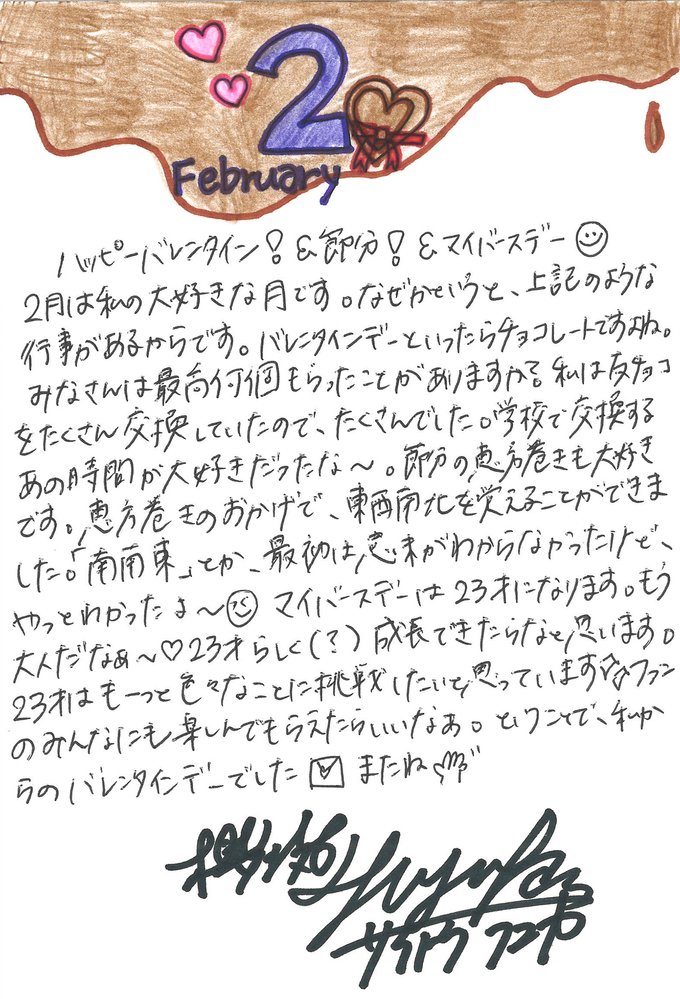 2
February
ハッピーバレンタイン!&節分!&マイバースデー
2月は私の大好きな月です。なぜかというと、上記のような
行事があるからです。バレンタインデーといったらチョコレートですよね。
みなさんは最高何個もらったことがありますか?私は友チョコ
をたくさん交換していたので、たくさんでした。学校で交換する
あの時間が大好きだったな〜。節分の恵方巻きも大好き
です。恵方巻きのおかげで、東西南北を覚えることができま
した。「南南東」とか、最初は意味がわからなかったけど、
やっとわかったよ〜 マイバースデーは23才になります。もう
大人だなぁ〜♡23才らしく(?)成長できたらなと思います。
23才はもーっと色々なことに挑戦したいと思っています☆☆ファン
のみんなにも楽しんでもらえたらいいなぁ。ということで、私か
らのバレンタインデーでした またね
サイトウ フユカ